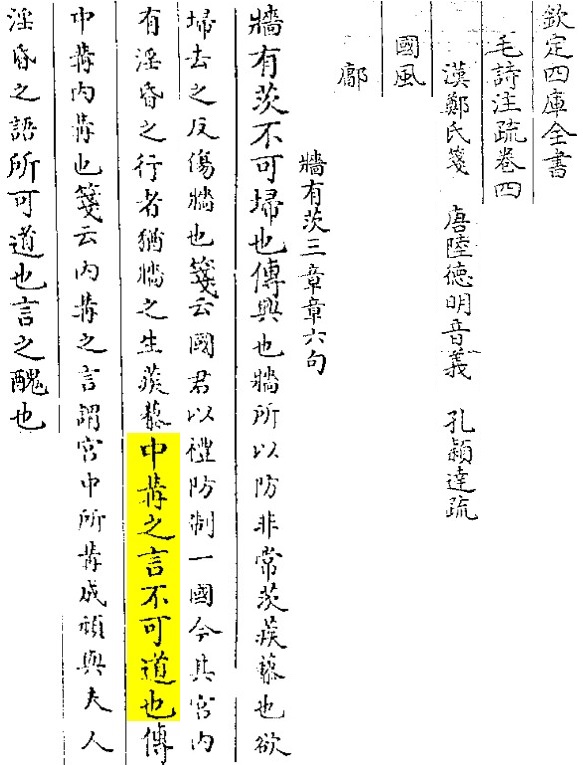 欽定四庫全書
毛詩注疏卷四
漢鄭氏箋 唐陸德明音義 孔穎達疏
國風
鄘
牆有茨三章章六句
牆有茨不可埽也傳興也牆所以防非常茨蒺藜也欲
埽去之反傷牆也箋云國君以禮防制一國今其宮内
有淫昏之行者猶牆之生蒺藜中冓之言不可道也傳
中冓内冓也箋云内冓之言謂宮中所冓成頑與夫人
淫昏之語所可道也言之醜也